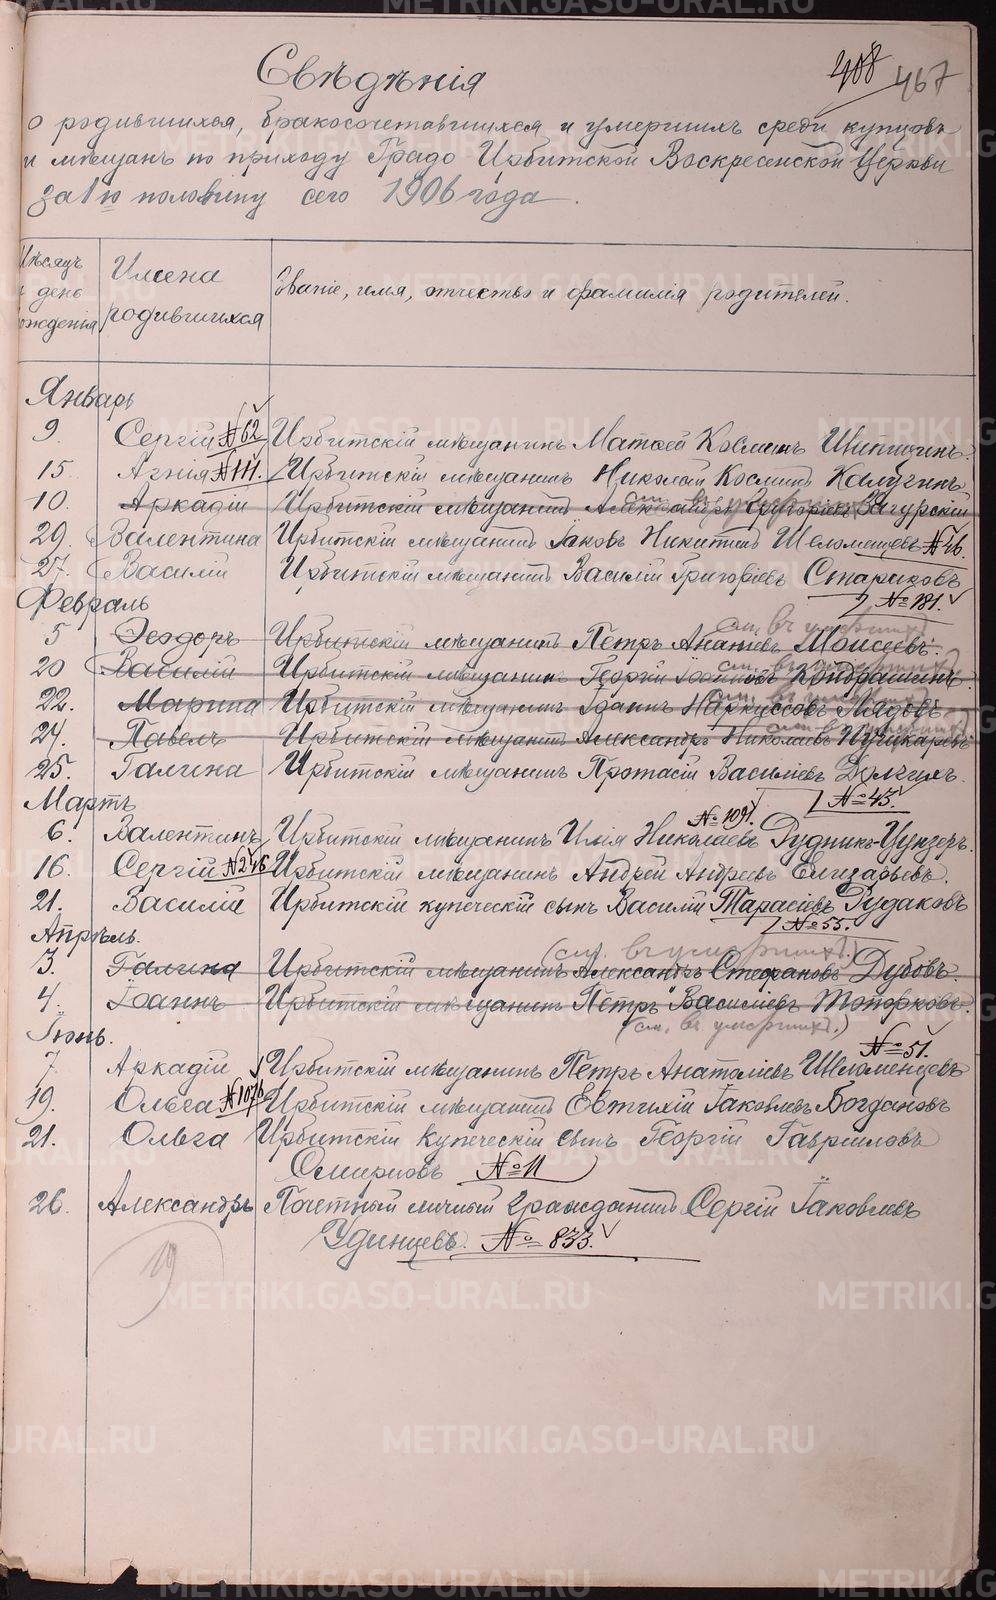 408 467
Свѣдѣнія
о родившихся, бракосочетавшихся и умершихъ среди купцовъ
и мѣщанъ по приходу Градо Ирбитской Воскресенской Церкви
за 1ю половину сего 1906 года.
Мѣсяцъ и день рожденія
Имена родившихся
Званіе, имя, отчество и фамилія родителей.
Январь
9. Сергій №62 Ирбитскій мѣщанинъ Матвей Косминъ
15. Агнія №111. Ирбитскій мѣщанинъ Николай Косминъ Калугинъ
10. Аркадій Ирбитскій мѣщанинъ Александръ Григоріевъ Загурскій
см. въ умершихъ
29. Валентина Ирбитскій мѣщанинъ Іаковъ Никитинъ Шеломенцевъ
27. Василій Ирбитскій мѣщанинъ Василій Григоріевъ Стариковъ
№ 181.
Февраль
см. въ умершихъ
5 Ѳеодоръ Ирбитскій мѣщанинъ Петръ Ананіевъ Моисеевъ.
см. въ умершихъ
20 Василій Ирбитскій мѣщанинъ Георгій Іоанновъ Кондрашинъ.
см. въ умершихъ
22. Марина Ирбитскій мѣщанинъ Іоаннъ Наркиссовъ
см. въ умершихъ
24. Павелъ Ирбитскій мѣщанинъ Александръ Николаевъ
25. Галина Ирбитскій мѣщанинъ Протасій Василіевъ Долгихъ.
№ 43.
Мартъ
№ 109.
6. Валентинъ Ирбитскій мѣщанинъ Илія Николаевъ Рудникъ-Цунзеръ.
16. Сергій №246 Ирбитскій мѣщанинъ Андрей Андреевъ Елизарьевъ.
21. Василій Ирбитскій купеческій сынъ Василій Тарасіевъ Рудаковъ
№ 55.
Апрѣль.
(см. въ умерших.)
3. Галина Ирбитскій мѣщанинъ Александръ Стефановъ Дубовъ.
4. Іоаннъ Ирбитскій мѣщанинъ Петръ Василіевъ Топорковъ.
(см. въ умерших.)
Іюнь.
№ 51.
7. Аркадій Ирбитскій мѣщанинъ Петръ Анатоліевъ Шеломенцевъ
19. Ольга №1076 Ирбитскій мѣщанинъ Евтихій Іаковлевъ Богдановъ
21. Ольга Ирбитскій Купеческій сынъ Георгій Гавриловъ
Смирновъ № 11
26. Александръ Почетный личный гражданинъ Сергій Іаковлевъ
Удинцевъ. № 833.
19
METRIKI.GASO-URAL.RU